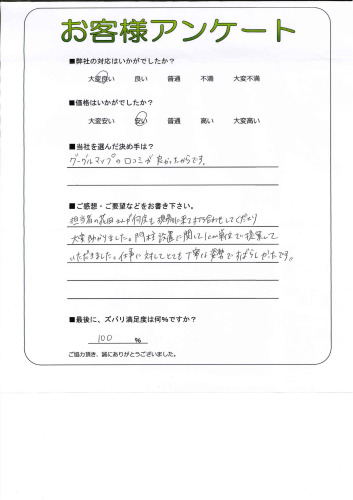 お客様アンケート
■弊社の対応はいかがでしたか?
大変良い 良い 普通 不満 大変不満
■価格はいかがでしたか?
大変安い 安い 普通 高い 大変高い
■当社を選んだ決め手は?
グーグルマップの口コミが良かったからです。
■ご感想・ご要望などをお書き下さい。
担当者の花田さんが何度も現場に来て打ち合わせしてくださり
大変助かりました。門柱設置に関して1cm単位で提案して
いただきました。仕事に対してとても丁寧な姿勢ですばらしかったです。
■最後に、ズバリ満足度は何%ですか?
100 %
ご協力頂き、誠にありがとうございました。